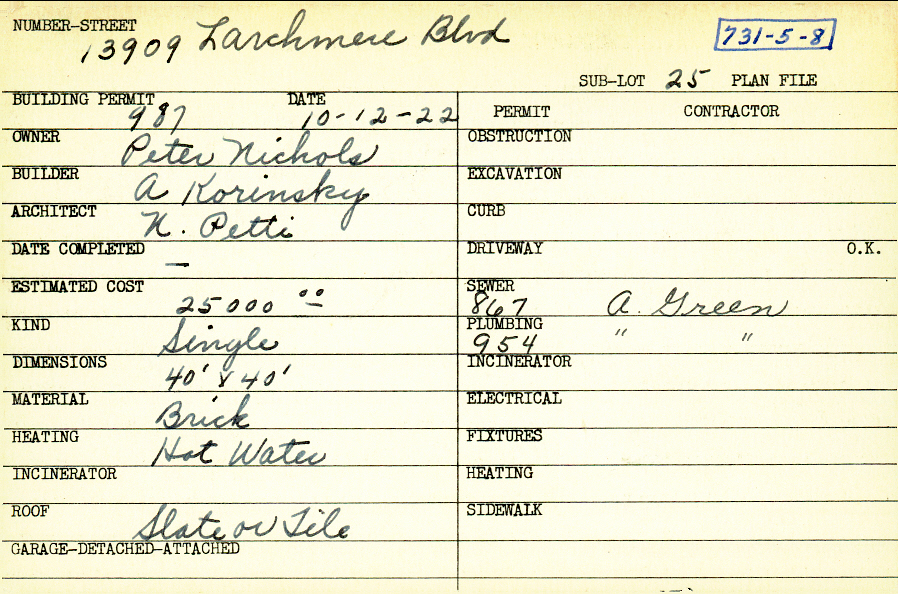 NUMBER-STREET
13909 Larchmere Blvd
731-5-8
SUB-LOT 25 PLAN FILE
BUILDING PERMIT DATE
987 10-12-22
PERMIT CONTRACTOR
OWNER
Peter Nichols
OBSTRUCTION
BUILDER
A Korinsky
EXCAVATION
ARCHITECT
N. Petti
CURB
DATE COMPLETED
—
DRIVEWAY O.K.
ESTIMATED COST
25000 00
SEWER
867 A. Green
KIND
Single
PLUMBING
954 " "
DIMENSIONS
40' x 40'
INCINERATOR
MATERIAL
Brick
ELECTRICAL
HEATING
Hot Water
FIXTURES
INCINERATOR
HEATING
ROOF
Slate or Tile
SIDEWALK
GARAGE-DETACHED-ATTACHED